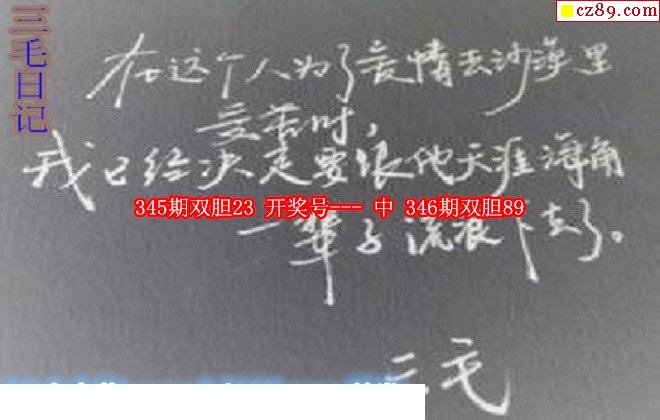 cz89.com
三毛日记
在这个人为了爱情去沙漠里
受苦时，
我已经决定要跟他天涯海角
345期双胆23 开奖号--- 中 346期双胆89
一辈子流浪下去了。
三毛